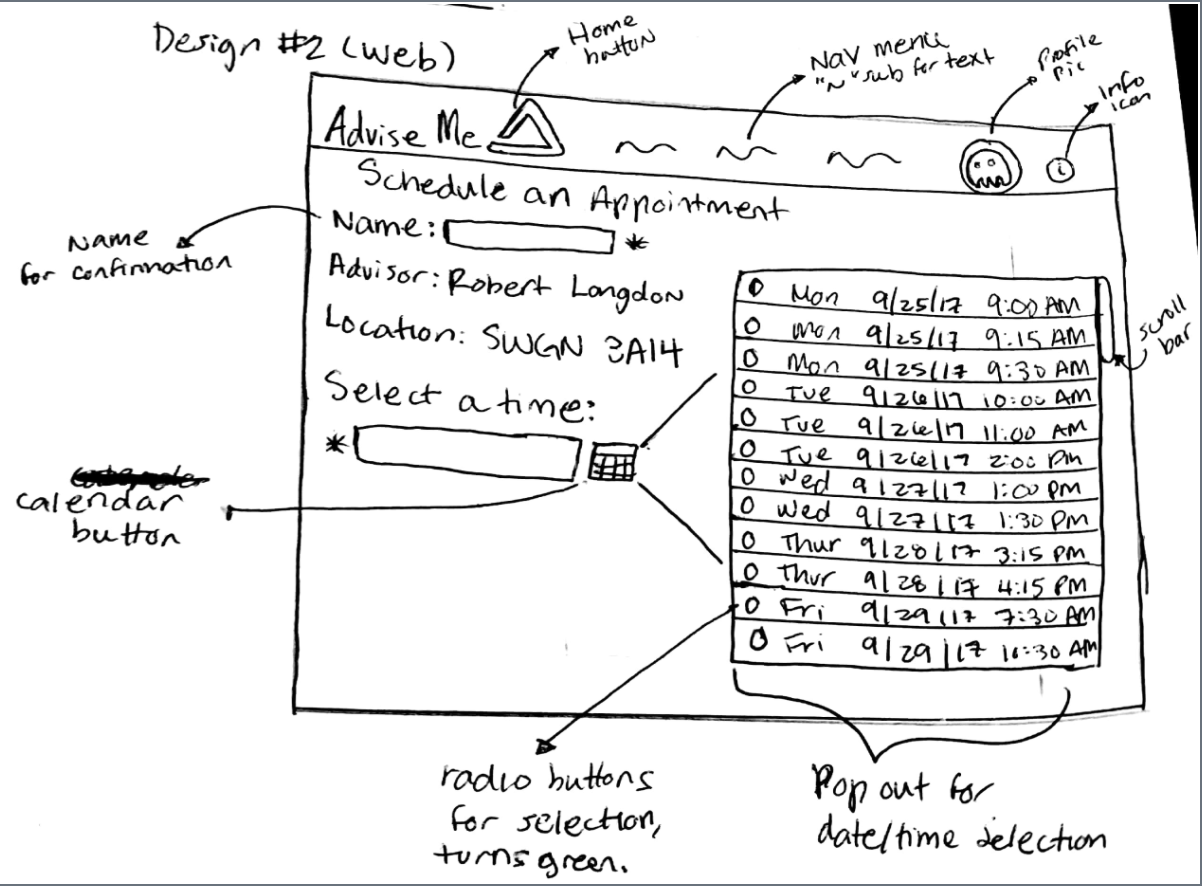 Design #2 (web)
Home
button
Nav menu
"~" sub for text
Profile
Pic
Info
icon
Advise Me
i
Schedule an Appointment
Name: *
Name
for confirmation
Advisor: Robert Langdon
Location: SWGN 3A14
Select a time:
*
calendar
button
Mon 9/25/17 9:00 AM
Mon 9/25/17 9:15 AM
Mon 9/25/17 9:30 AM
Tue 9/26/17 10:00 AM
Tue 9/26/17 11:00 AM
Tue 9/26/17 2:00 PM
Wed 9/27/17 1:00 PM
Wed 9/27/17 1:30 PM
Thur 9/28/17 3:15 PM
Thur 9/28/17 4:15 PM
Fri 9/29/17 7:30 AM
Fri 9/29/17 :30 AM
scroll
bar
radio buttons
for selection,
turns green.
Pop out for
date/time selection